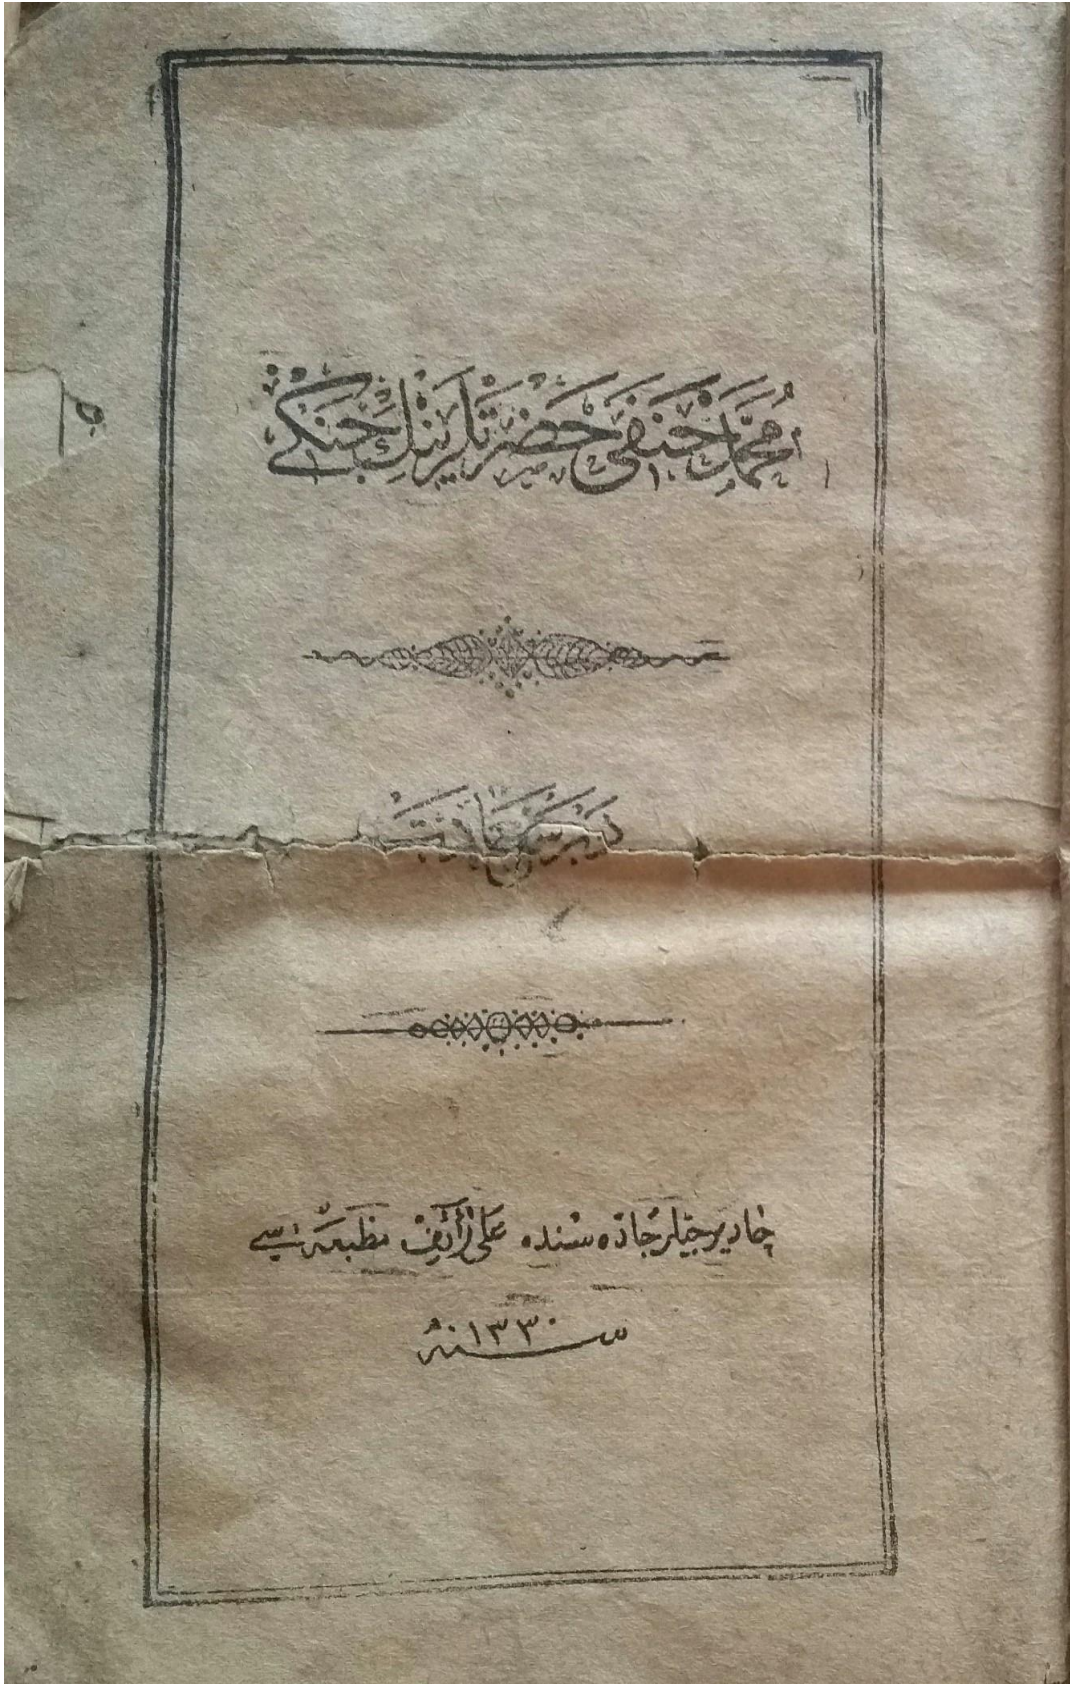 محمد حنفی حضرتلرینك جنكی
درسعادت
چادیرجیلر جاده سنده علی رأفت مطبعه سی
سنه ١٣٣٠